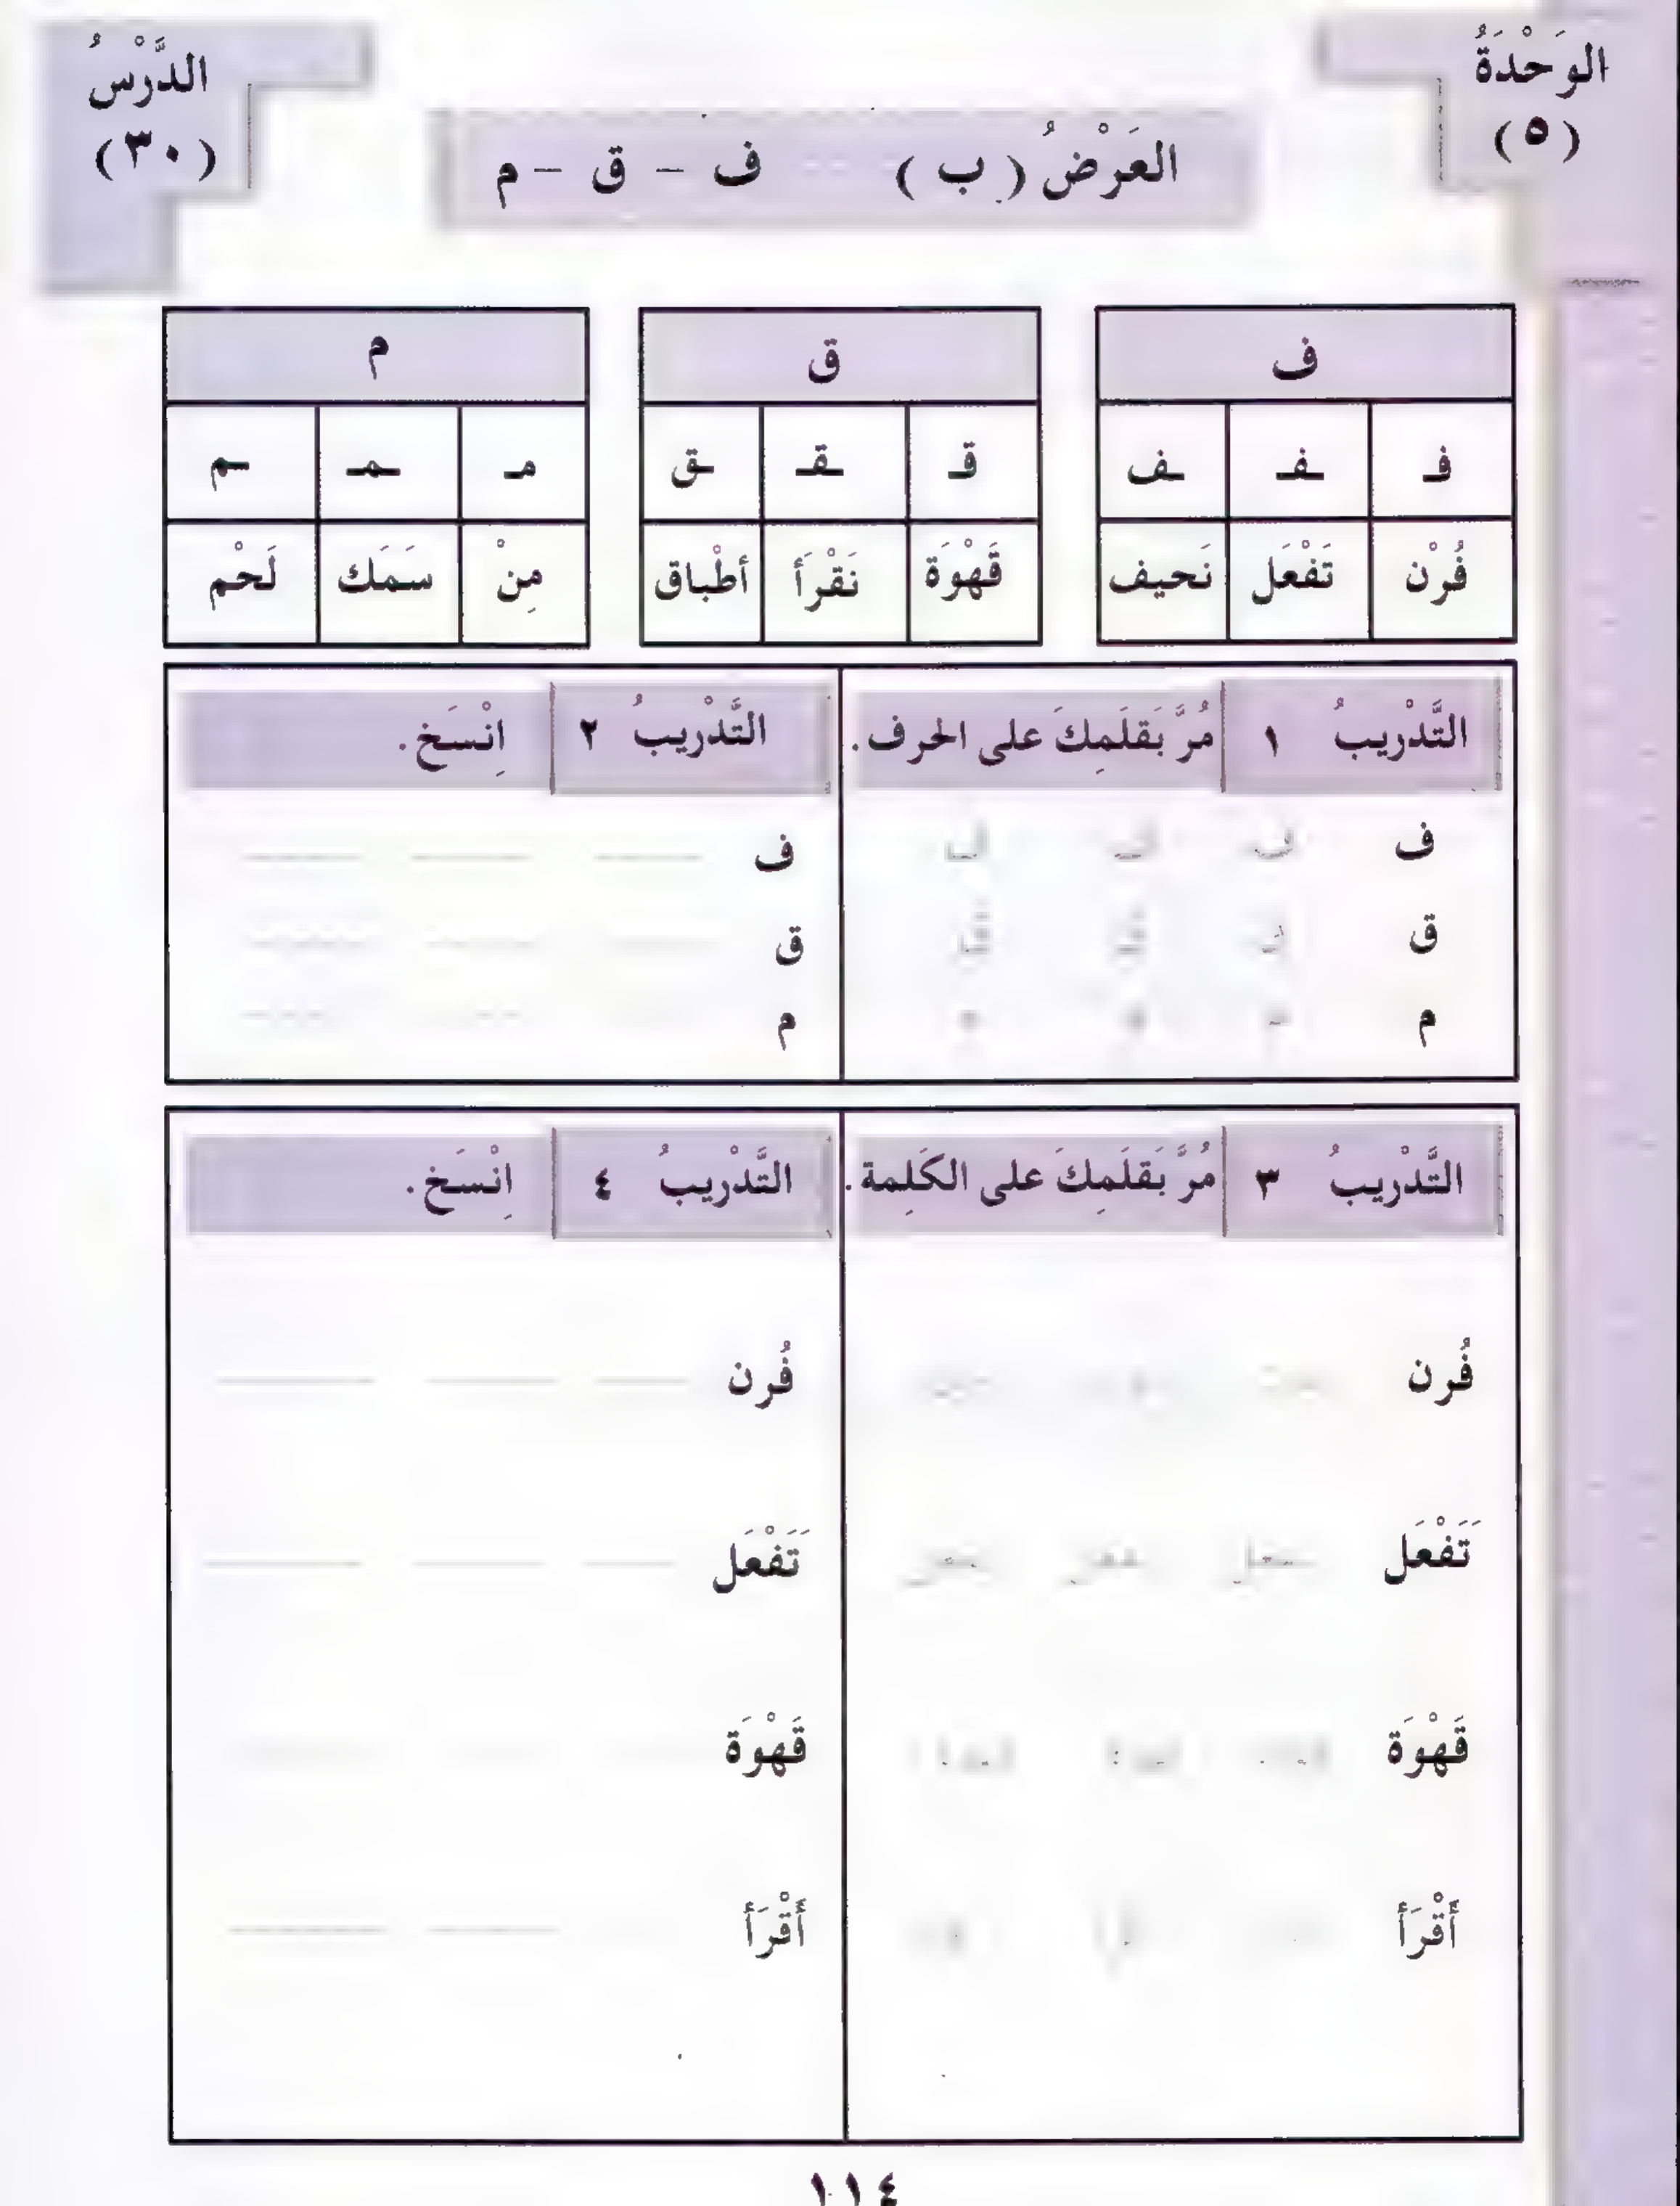 الوَحْدَةُ
(٥)
الدَّرْسُ
(٣٠)
العَرْضُ (ب) ف - ق - م
ف
فـ ـفـ ـف
فُرْن تَفْعَل نَحيف
ق
قـ ـقـ ـق
قَهْوَة نَقْرَأ أطْباق
م
مـ ـمـ ـم
مِنْ سَمَك لَحْم
التَّدْرِيبُ ١ مُرَّ بَقلَمِكَ على الحرف.
ف ف ف ف
ق ق ق ق
م م م م
التَّدْرِيبُ ٢ اِنْسَخ.
ف
ق
م
التَّدْرِيبُ ٣ مُرَّ بَقلَمِكَ على الكَلِمة.
فُرن
تَفْعَل
قَهْوَة
أَقْرَأ
التَّدْرِيبُ ٤ اِنْسَخ.
فُرن
تَفْعَل
قَهْوَة
أَقْرَأ
١١٤